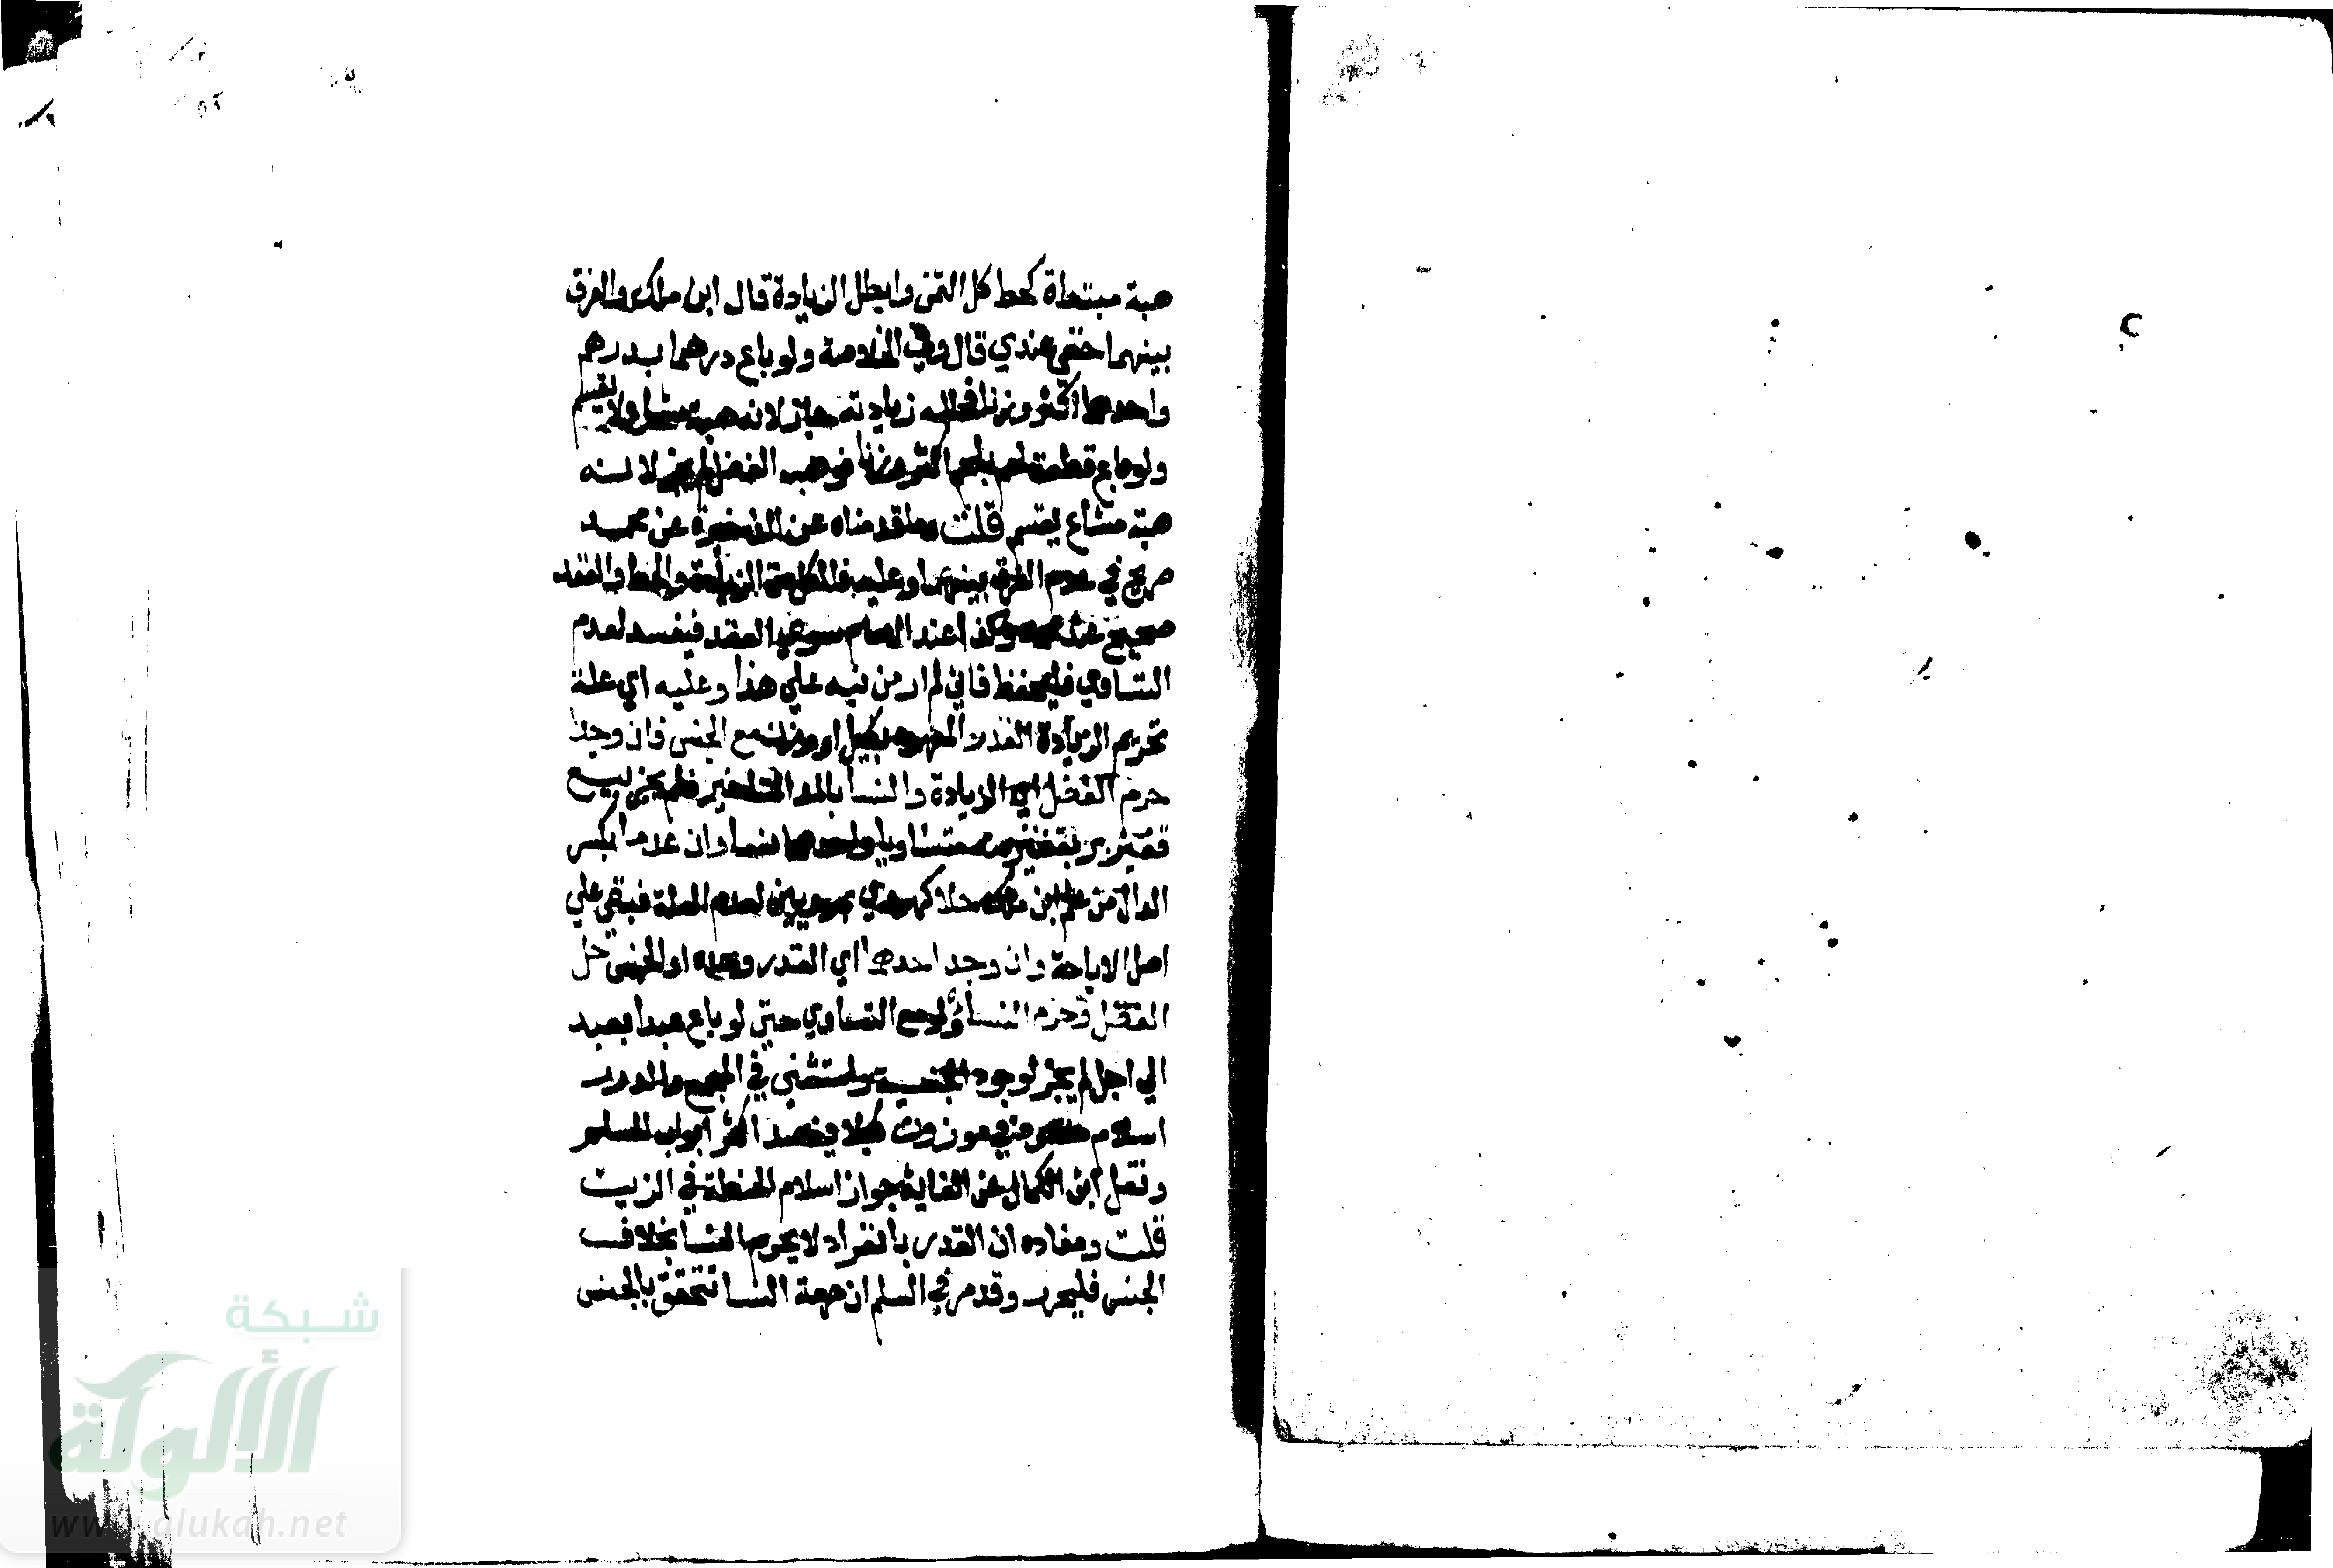 هبة مبتداة كحط كل الثمن وابطل الزيادة قال ابن ملك والفرق
بينهما خفي عندي قال وفي الخلاصة ولو باع درهما بدرهم
واحدهما اكثر وزنا فحلله زيادته جاز لانه هبة مشاع لا يقسم
ولو باع قطعة لحم بلحم اكثر وزنا فوهب الفضل لم يجز لانه
هبة مشاع يقسم قلت وما قدمناه عن الذخيرة عن محمد
صريح في عدم الفرق بينهما وعليه فالكل من الزيادة والحط والعقد
صحيح عند محمد وكذا عند الامام سوى العقد فيفسد لعدم
التساوي فليحفظ فاني لم ار من نبه علي هذا وعليه اي علة
تحريم الزيادة القدر المعهود بكيل او وزن مع الجنس فان وجدا
حرم الفضل اي الزيادة والنسا بالمد التاخير فلم يجز بيع
قفيز بر بقفيز منه متساويا واحدهما نسا وان عدما بكسر
الدال من علم ابن ملك حلا كهروي بمرويين لعدم العلة فبقي علي
اصل الاباحة وان وجد احدهما اي القدر وحده او الجنس حل
الفضل وحرم النسا ولو مع التساوي حتى لو باع عبدا بعبد
الي اجل لم يجز لوجود الجنسية واستثني في المجمع والدرر
اسلام في موزون كيلا يفسد اكثر ابواب السلم
ونقل ابن الكمال عن الغاية جواز اسلام الحنطة في الزيت
قلت ومفاده ان القدر بانفراده لا يحرم النسا بخلاف
الجنس فليحرر وقد مر في السلم ان حرمة النسا تتحقق بالجنس
شبكة
الألوكة
www.alukah.net